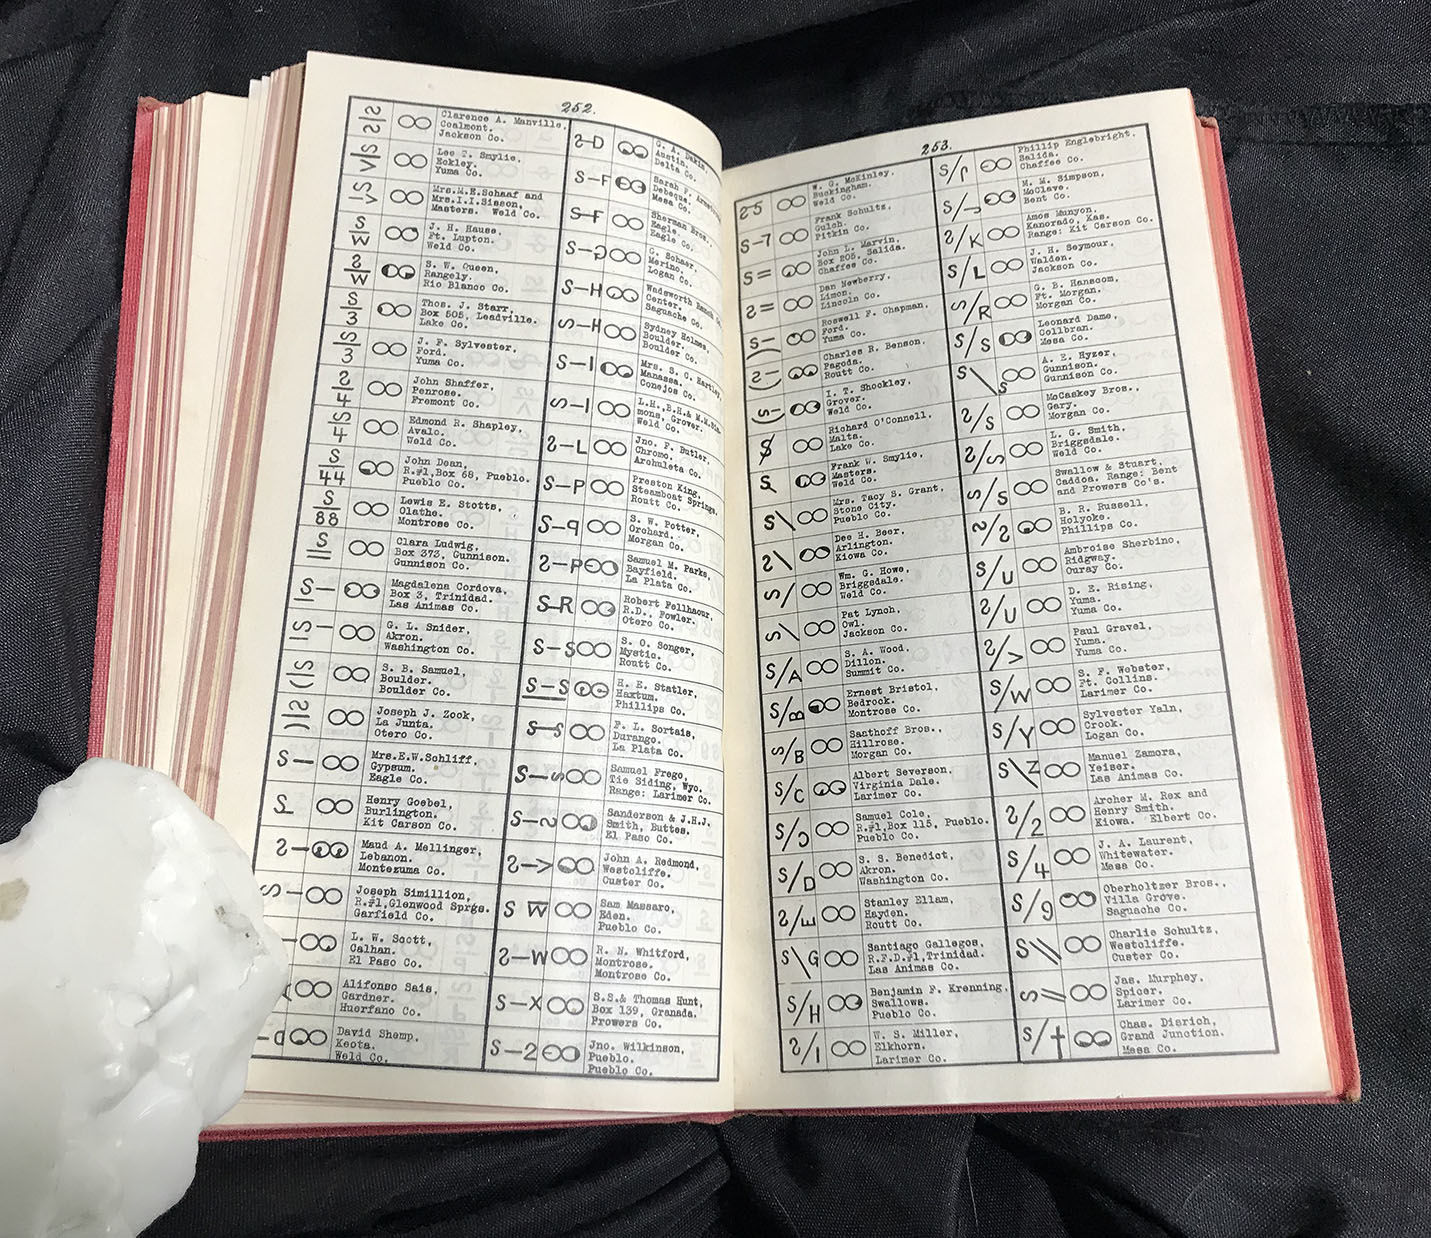 252.
Clarence A. Manville,
Coalmont.
Jackson Co.
Lee T. Smylie,
Eckley.
Yuma Co.
Mrs.M.E.Schaaf and
Mrs.I.I.Sisson,
Masters. Weld Co.
S
W
J. H. Hause,
Ft. Lupton.
Weld Co.
W
S. W. Queen,
Rangely.
Rio Blanco Co.
S
3
Thos. J. Starr,
Box 505, Leadville.
Lake Co.
S
3
J. F. Sylvester,
Ford.
Yuma Co.
4
John Shaffer,
Penrose.
Fremont Co.
S
4
Edmond R. Shapley,
Avalo.
Weld Co.
S
44
John Dean,
R.#1,Box 68, Pueblo.
Pueblo Co.
S
88
Lewis E. Stotts,
Olathe.
Montrose Co.
S
Clara Ludwig,
Box 373, Gunnison.
Gunnison Co.
S—
Magdalena Cordova,
Box 3, Trinidad.
Las Animas Co.
G. L. Snider,
Akron.
Washington Co.
S. B. Samuel,
Boulder.
Boulder Co.
Joseph J. Zook,
La Junta.
Otero Co.
S—
Mrs.E.W.Schliff,
Gypsum.
Eagle Co.
Henry Goebel,
Burlington.
Kit Carson Co.
Maud A. Mellinger,
Lebanon.
Montezuma Co.
Joseph Simillion,
R.#1,Glenwood Sprgs.
Garfield Co.
L. W. Scott,
Calhan.
El Paso Co.
Alifonso Sais,
Gardner.
Huerfano Co.
David Shemp,
Keota.
Weld Co.
G. A. Dakin,
Austin.
Delta Co.
S-F
Sarah F.
Debeque.
Mesa Co.
S-F
Sherman Bros.
Eagle.
Eagle Co.
G. Schaer,
Merino.
Logan Co.
S-H
Wadsworth Ranch
Center.
Saguache Co.
Sydney Holmes,
Boulder.
Boulder Co.
S-I
Mrs. S. C. Hartley,
Manassa.
Conejos Co.
L.H.,B.H.& M.M.
mons, Grover.
Weld Co.
Jno. F. Butler,
Chromo.
Archuleta Co.
S-P
Preston King,
Steamboat Springs.
Routt Co.
S-q
S. W. Potter,
Orchard.
Morgan Co.
Samuel M. Parks,
Bayfield.
La Plata Co.
S-R
Robert Fellhauer,
R.D., Fowler.
Otero Co.
S-S
S. O. Songer,
Mystic.
Routt Co.
S-S
H. E. Statler,
Haxtum.
Phillips Co.
F. L. Sortais,
Durango.
La Plata Co.
Samuel Frego,
Tie Siding, Wyo.
Range: Larimer Co.
Sanderson & J.H.J.
Smith, Buttes.
El Paso Co.
John A. Redmond,
Westcliffe.
Custer Co.
S W
Sam Massaro,
Eden.
Pueblo Co.
R. N. Whitford,
Montrose.
Montrose Co.
S-X
S.S.& Thomas Hunt,
Box 139, Granada.
Prowers Co.
S-2
Jno. Wilkinson,
Pueblo.
Pueblo Co.
253.
W. G. McKinley,
Buckingham.
Weld Co.
S-7
Frank Schultz,
Gulch.
Pitkin Co.
S=
John L. Marvin,
Box 205, Salida.
Chaffee Co.
Dan Newberry,
Limon.
Lincoln Co.
Roswell F. Chapman,
Ford.
Yuma Co.
Charles R. Benson,
Pagoda.
Routt Co.
I. T. Shockley,
Grover.
Weld Co.
Richard O'Connell,
Malta.
Lake Co.
Frank W. Smylie,
Masters.
Weld Co.
S\
Mrs. Tacy S. Grant,
Stone City.
Pueblo Co.
Dee H. Beer,
Arlington.
Kiowa Co.
Wm. G. Howe,
Briggsdale.
Weld Co.
Pat Lynch,
Owl.
Jackson Co.
S/A
S. A. Wood,
Dillon.
Summit Co.
Ernest Bristol,
Bedrock.
Montrose Co.
S/B
Sasthoff Bros.,
Hillrose.
Morgan Co.
S/C
Albert Severson,
Virginia Dale.
Larimer Co.
Samuel Cole,
R.#1,Box 115, Pueblo.
Pueblo Co.
S/D
S. S. Benedict,
Akron.
Washington Co.
Stanley Ellam,
Hayden.
Routt Co.
S\G
Santiago Gallegos,
R.F.D.#1,Trinidad.
Las Animas Co.
S/H
Benjamin F. Krenning,
Swallows.
Pueblo Co.
W. S. Miller,
Elkhorn.
Larimer Co.
Phillip Englebright,
Salida.
Chaffee Co.
M. M. Simpson,
McClave.
Bent Co.
Amos Munyon,
Kanorado, Kas.
Range: Kit Carson Co.
S/L
J. H. Seymour,
Walden.
Jackson Co.
G. B. Hanscom,
Ft. Morgan.
Morgan Co.
S/S
Leonard Dame,
Collbran.
Mesa Co.
S\S
A. E. Hyzer,
Gunnison.
Gunnison Co.
McCaskey Bros.,
Gary.
Morgan Co.
L. G. Smith,
Briggsdale.
Weld Co.
Swallow & Stuart,
Caddoa. Range: Bent
and Prowers Co's.
B. R. Russell,
Holyoke.
Phillips Co.
S/U
Ambroise Sherbino,
Ridgway.
Ouray Co.
D. E. Rising,
Yuma.
Yuma Co.
Paul Gravel,
Yuma.
Yuma Co.
S/W
S. F. Webster,
Ft. Collins.
Larimer Co.
S/Y
Sylvester Yaln,
Crook.
Logan Co.
S\Z
Manuel Zamora,
Yeiser.
Las Animas Co.
Archer M. Rex and
Henry Smith.
Kiowa. Elbert Co.
S/4
J. A. Laurent,
Whitewater.
Mesa Co.
S/9
Oberholtzer Bros.,
Villa Grove.
Saguache Co.
S\\
Charlie Schultz,
Westcliffe.
Custer Co.
Jas. Murphey,
Spicer.
Larimer Co.
Chas. Disrich,
Grand Junction.
Mesa Co.